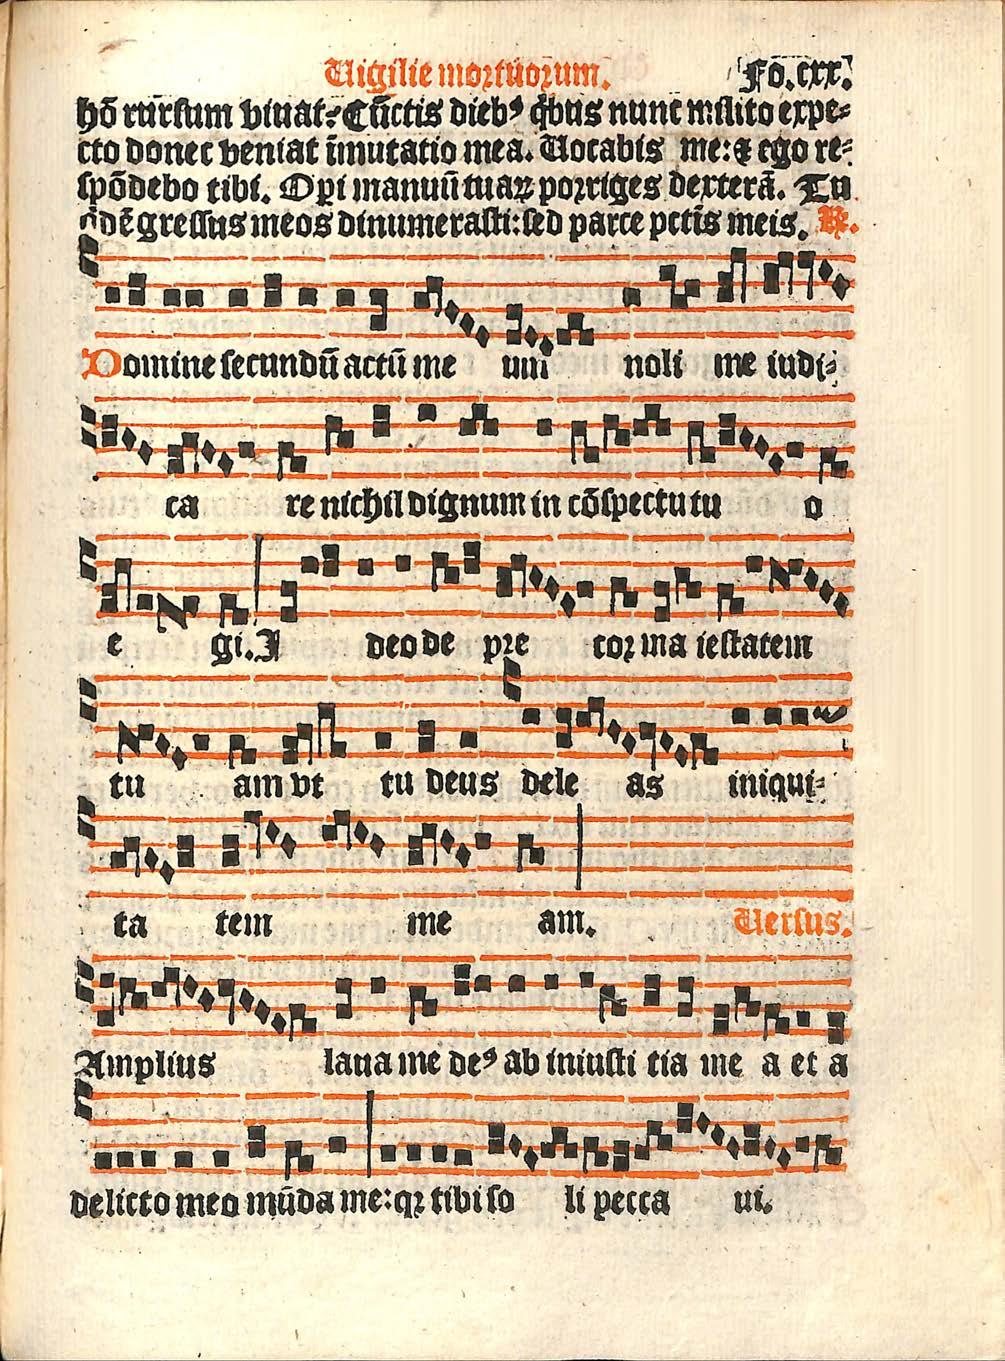 Uigilie mortuorum. Fo. cxx.
hō rursum viuat? Cūctis dieb⁹ q̄bus nunc milito expe-
cto donec veniat īmutatio mea. Uocabis me: & ego re-
spōdebo tibi. Opi manuū tuaꝝ porriges dexterā. Tu
q̇dē gressus meos dinumerasti: sed parce pctīs meis. ℟.
Domine secundū actū me um noli me iudi-
ca re nichil dignum in cōspectu tu o
e gi. I deo de pre cor ma iestatem
tu am vt tu deus dele as iniqui-
ta tem me am. Uersus.
Amplius laua me de⁹ ab iniusti tia me a et a
delicto meo mūda me: qꝛ tibi so li pecca ui.